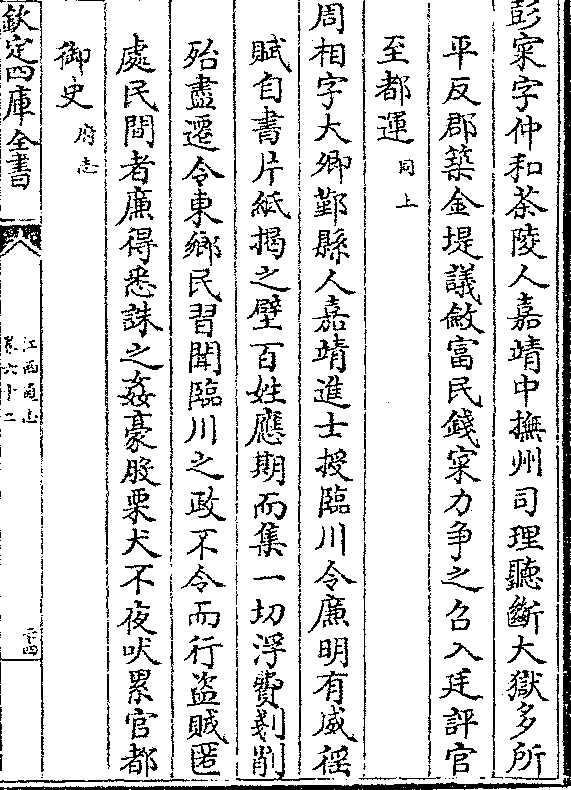 彭寀字仲和茶陵人嘉靖中撫州司理聽斷大獄多所
平反郡築金堤議斂富民錢寀力争之召入廷評官
至都運同上
周相字大卿鄞縣人嘉靖進士授臨川令廉明有威徭
賦自書片紙揭之壁百姓應期而集一切浮費剗削
殆盡遷令東鄉民習聞臨川之政不令而行盜賊匿
處民間者廉得悉誅之姦豪股栗犬不夜吠累官都
御史府志
欽定四庫全書
江西通志
卷六十二
二十四